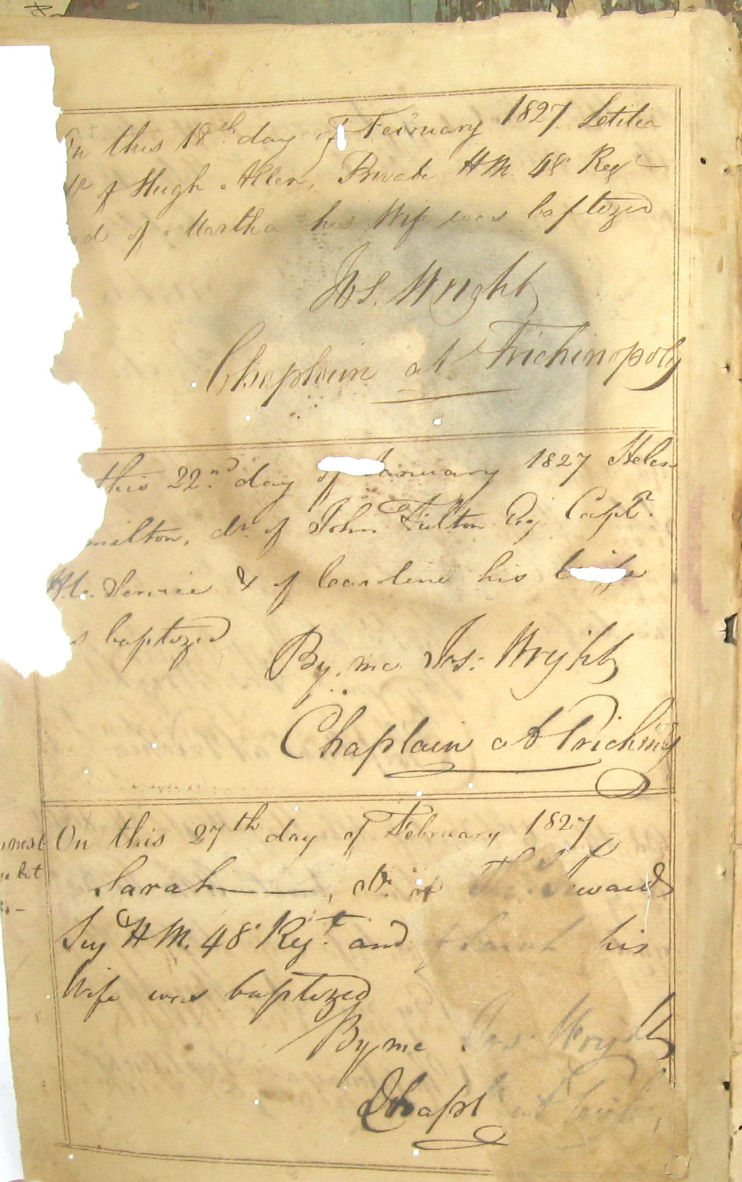 On this 18th day of February 1827. Letitia
Dr. of Hugh Allen, Private H M. 48 Regt
and of Martha his Wife was baptized
Jos. Wright
Chaplain at Trichinopoly
this 22nd day of January 1827 Helen
milton, dr. of John Fulton Esq Captn.
Service & of Caroline his Wife
s baptized
By me Jos: Wright
Chaplain at Trichinoy
On this 27th day of February 1827
Sarah——, dr. of
Sey H M. 48 Regt. and of Sarah his
Wife was baptized
By me Jos: Wright
Chapl at Trich,